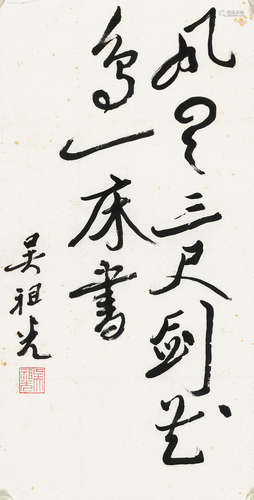 风云三尺剑花
鸟一床书
吴祖光